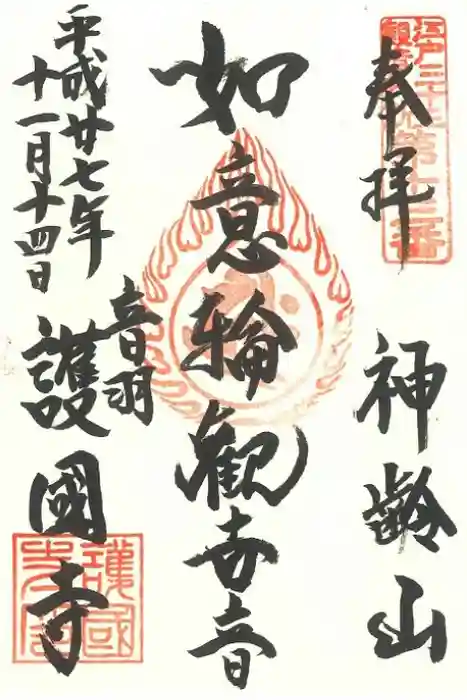 奉拝
江戸三十三観音札所第十三番
神齢山
如意輪観世音
平成廿七年
十一月十四日
音羽
護國寺